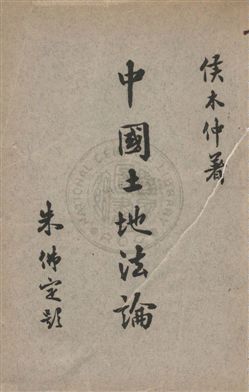 侯木仲著
中國土地法論
朱佛定題
NATIONAL CENTRAL LIBRARY